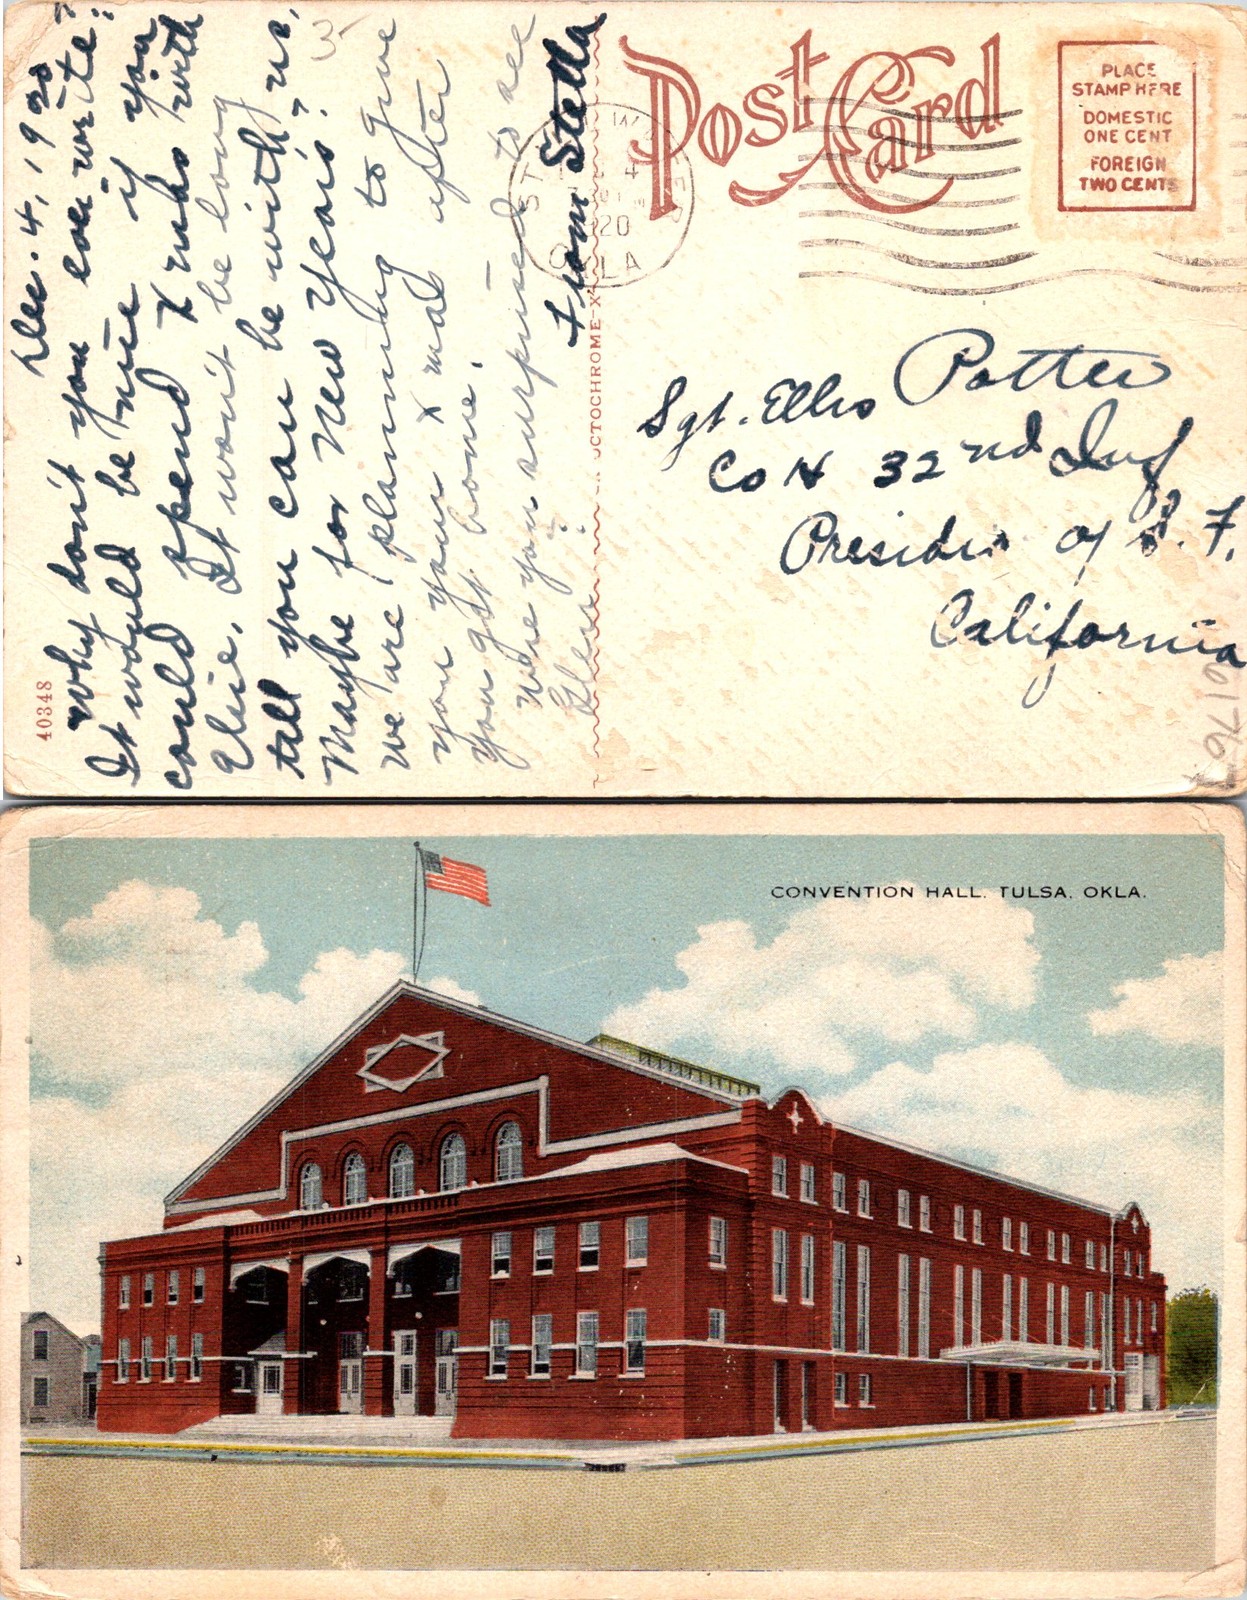 Dec. 4, 1920
Why don't you ever write?
It would be nice if you
could spend X mas with
Elsie. It won't be long
till you can be with us,
Maybe for New Years?
We are planning to give
you your X mas after
you get home.
Were you surprised to see
Glen?
From Stella
40348
OCTOCHROME
Post Card
PLACE
STAMP HERE
DOMESTIC
ONE CENT
FOREIGN
TWO CENTS
STILLWATER
4
1920
OKLA
Sgt. Ellis Potter
Co H 32nd Inf
Presidio of S. F.
California
CONVENTION HALL, TULSA, OKLA.